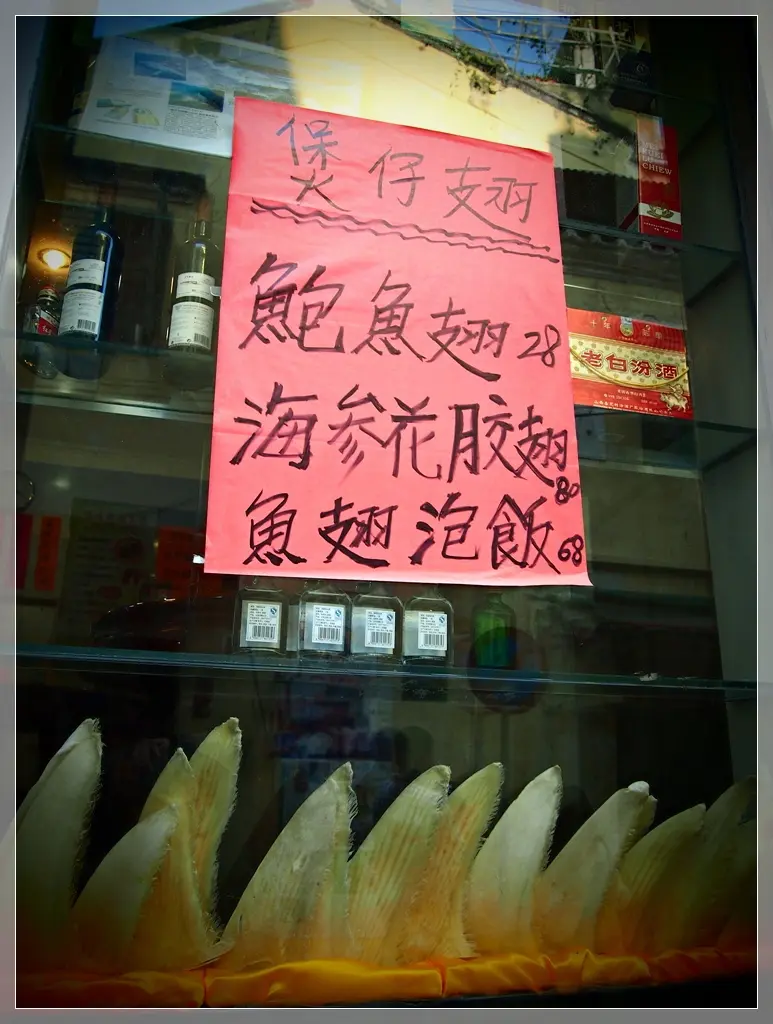 煲仔翅
鮑魚翅 28
海参花胶翅 80
魚翅泡飯 68
CHIEW
老白汾酒